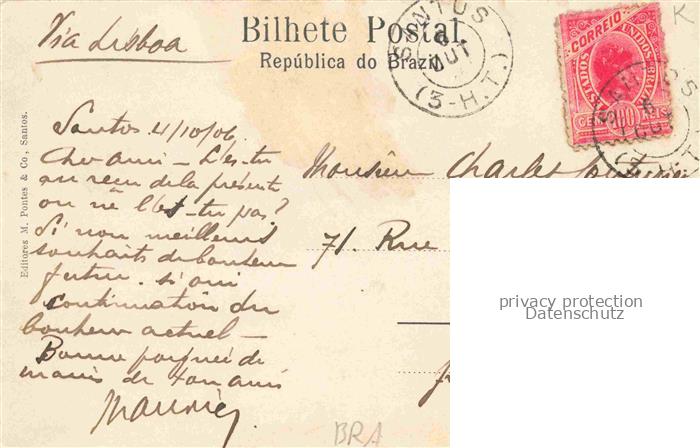 Via Lisboa
Bilhete Postal
República do Brazil
SANTOS
6
OUT
(3-H.T.)
K
CORREIO
ESTADOS UNIDOS DO BRAZIL
100
SANTOS
6
OUT
Editores M. Pontes & Co, Santos.
Santos 4/10/06.
Cher ami - L'es-tu
au reçu de la présente
ou ne l'es-tu pas?
Si non meilleurs
souhaits de bonheur
futur. si oui
continuation du
bonheur actuel -
Bonne poignée de
mains de ton ami
Maurice
Monsieur Charles
71. Rue
privacy protection
Datenschutz
BRA